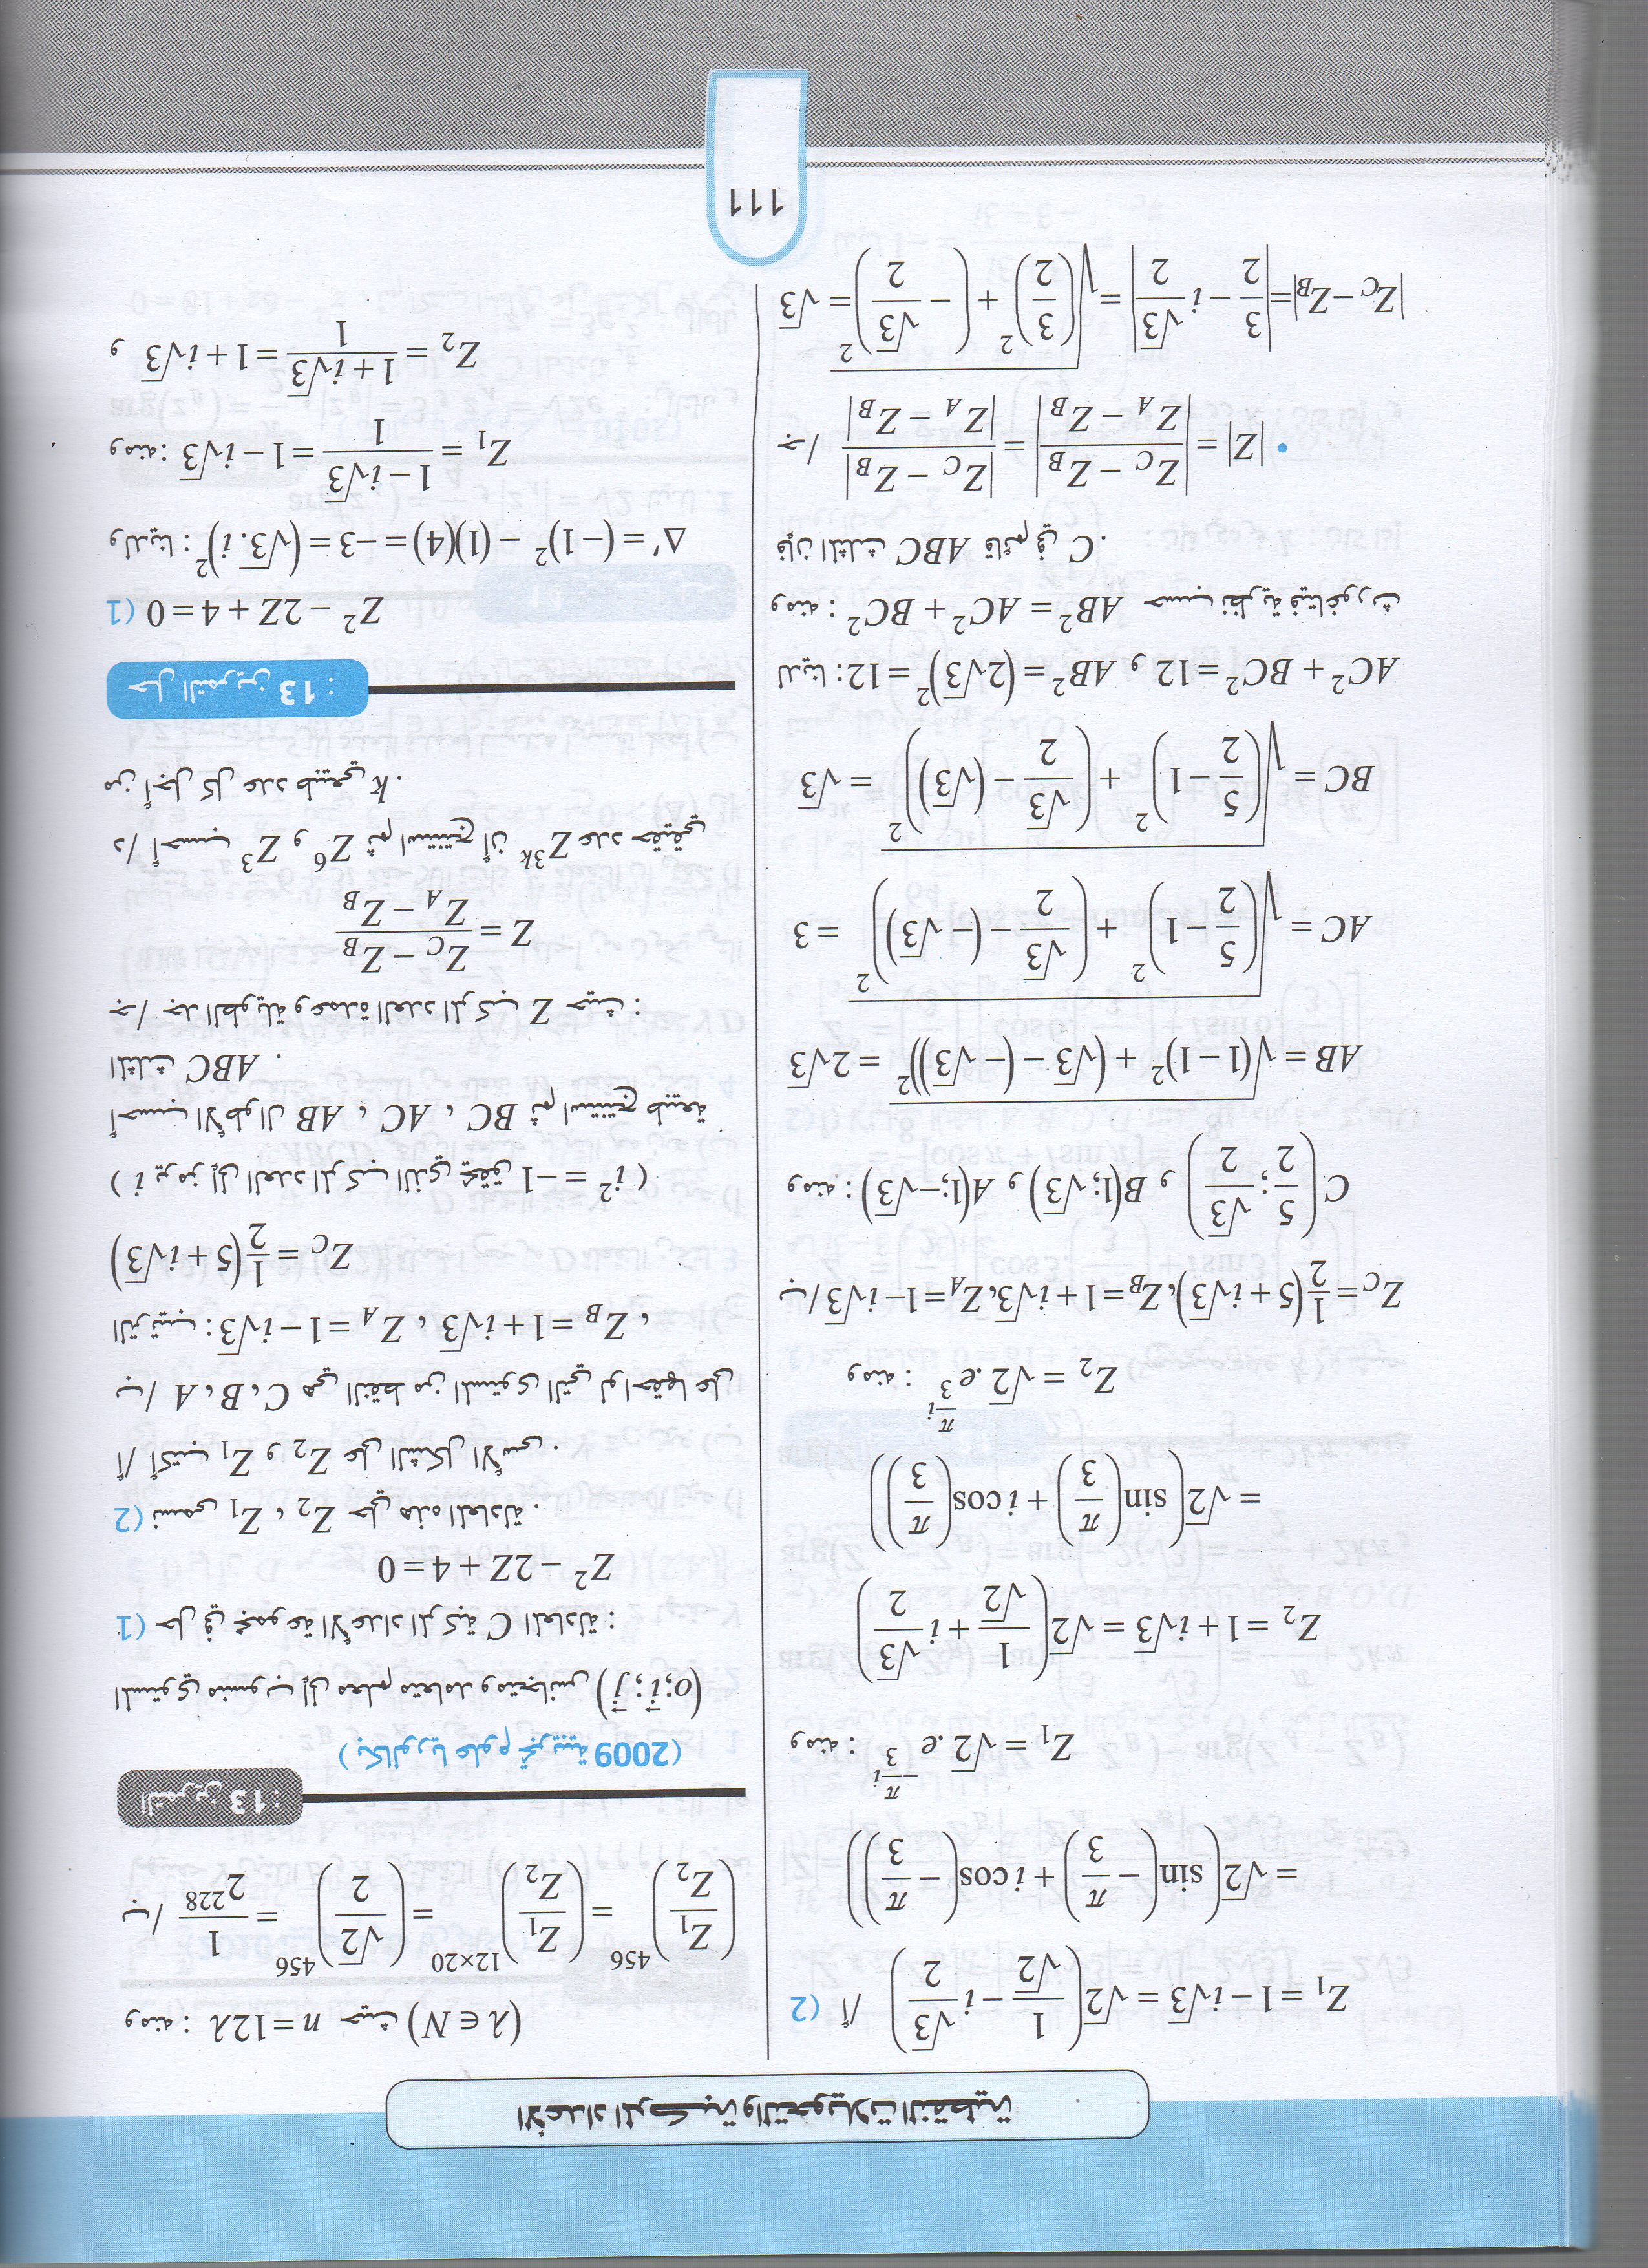 الأعداد المركبة والتحويلات النقطية
ومنه : n = 12λ حيث (λ ∈ N)
ب/ (Z₁/Z₂)^456 = (Z₁/Z₂)^(12×20) = (√2/2)^456 = 1/2^228
التمرين 13 :
(بكالوريا علوم تجريبية 2009)
المستوي منسوب إلى معلم متعامد ومتجانس (o; i⃗; j⃗)
1) حل في مجموعة الأعداد المركبة C المعادلة :
Z² − 2Z + 4 = 0
2) نسمي Z₁ ، Z₂ حلي هذه المعادلة .
أ/ أكتب Z₁ و Z₂ على الشكل الأسي .
ب/ A ، B ، C هي النقط من المستوي التي لواحقها على
الترتيب : Z_A = 1 − i√3 ، Z_B = 1 + i√3 ،
Z_C = 1/2(5 + i√3)
( i يرمز إلى العدد المركب الذي يحقق i² = −1 )
أحسب الأطوال AB ، AC ، BC ثم استنتج طبيعة
المثلث ABC .
جـ/ جد الطويلة وعمدة العدد المركب Z حيث :
Z = (Z_C − Z_B)/(Z_A − Z_B)
د/ أحسب Z³ و Z⁶ ثم استنتج أن Z^3k عدد حقيقي
من أجل كل عدد طبيعي k .
حل التمرين 13 :
1) Z² − 2Z + 4 = 0
ولدينا : Δ' = (−1)² − (1)(4) = −3 = (√3.i)²
ومنه : Z₁ = (1 − i√3)/1 = 1 − i√3
و Z₂ = (1 + i√3)/1 = 1 + i√3
2) أ/ Z₁ = 1 − i√3 = √2(1/√2 − i√3/2)
= √2(sin(−π/3) + i cos(−π/3))
ومنه : Z₁ = √2 .e^(−π/3 i)
Z₂ = 1 + i√3 = √2(1/√2 + i√3/2)
= √2(sin(π/3) + i cos(π/3))
ومنه : Z₂ = √2 .e^(π/3 i)
ب/ Z_C = 1/2(5 + i√3) ، Z_B = 1 + i√3 ، Z_A = 1 − i√3
ومنه : A(1; −√3) و B(1; √3) و C(5/2; √3/2)
AB = √((1 − 1)² + (√3 − (−√3))²) = 2√3
AC = √((5/2 − 1)² + (√3/2 − (−√3))²) = 3
BC = √((5/2 − 1)² + (√3/2 − (√3))²) = √3
لدينا : AB² = (2√3)² = 12 و AC² + BC² = 12
ومنه : AB² = AC² + BC² حسب نظرية فيتاغورث
فإن المثلث ABC قائم في C .
جـ/ • |Z| = |(Z_C − Z_B)/(Z_A − Z_B)| = |Z_C − Z_B|/|Z_A − Z_B|
|Z_C − Z_B| = |3/2 − i√3/2| = √((3/2)² + (−√3/2)²) = √3
111